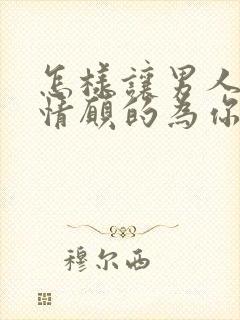 怎樣讓男人
情願的為你
穆尔西